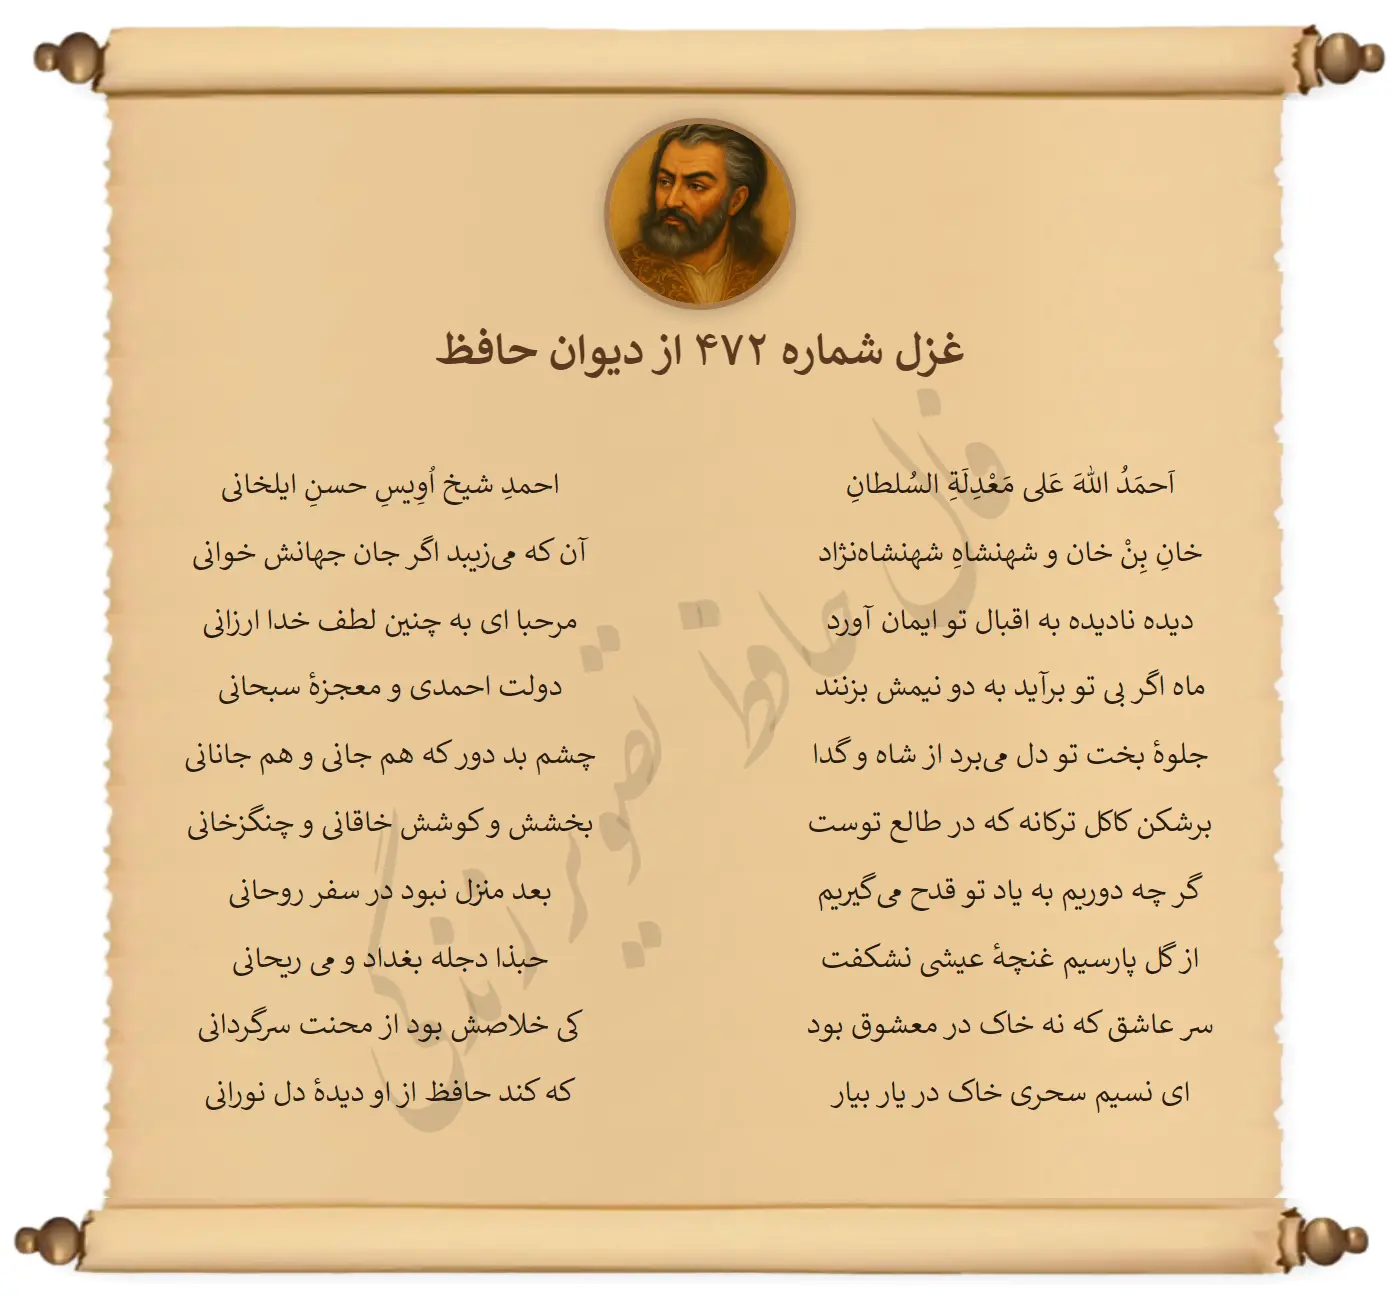 غزل شماره ۴۷۲ از دیوان حافظ
اَحمَدُ اللهَ عَلی مَعْدِلَةِ السُلطانِ احمدِ شیخ اُوِیسِ حسنِ ایلخانی
خانِ بِنْ خان و شهنشاهِ شهنشاه‌نژاد آن که می‌زیبد اگر جان جهانش خوانی
دیده نادیده به اقبال تو ایمان آورد مرحبا ای به چنین لطف خدا ارزانی
ماه اگر بی تو برآید به دو نیمش بزنند دولت احمدی و معجزهٔ سبحانی
جلوهٔ بخت تو دل می‌برد از شاه و گدا چشم بد دور که هم جانی و هم جانانی
برشکن کاکل ترکانه که در طالع توست بخشش و کوشش خاقانی و چنگزخانی
گر چه دوریم به یاد تو قدح می‌گیریم بعد منزل نبود در سفر روحانی
از گل پارسیم غنچهٔ عیشی نشکفت حبذا دجله بغداد و می ریحانی
سر عاشق که نه خاک در معشوق بود کی خلاصش بود از محنت سرگردانی
ای نسیم سحری خاک در یار بیار که کند حافظ از او دیدهٔ دل نورانی
فال حافظ تصویر زندگی